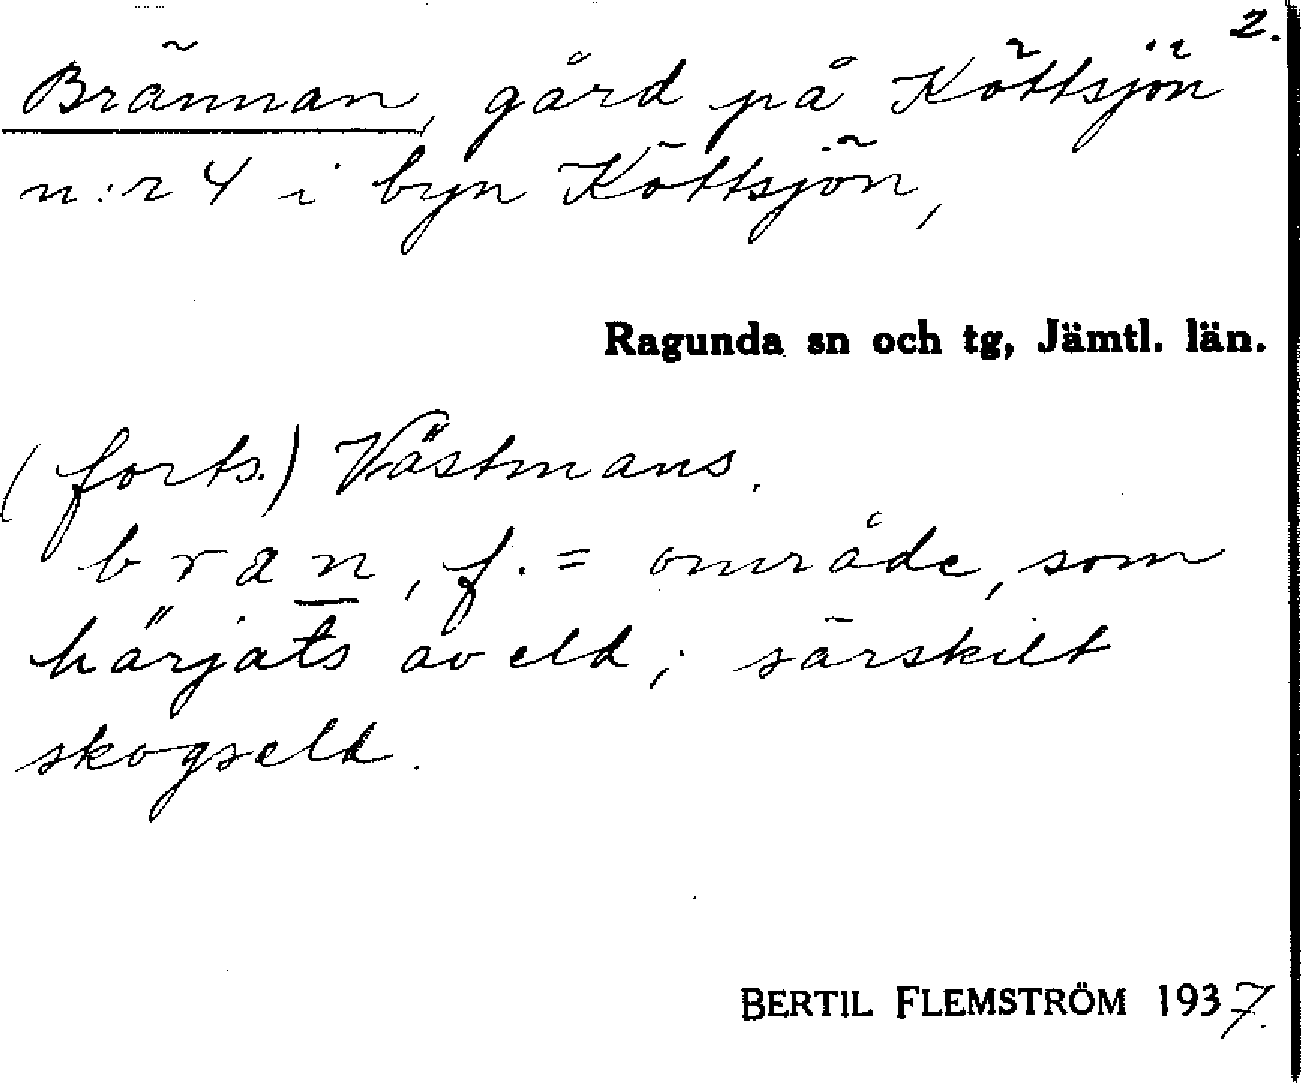 2.
Brännan, gård på Köttsjön
n:r 4 i byn Köttsjön,
Ragunda sn och tg, Jämtl. län.
(forts.) Västmans.
bran, f. = område, som
härjats av eld; särskilt
skogseld.
BERTIL FLEMSTRÖM 1937.